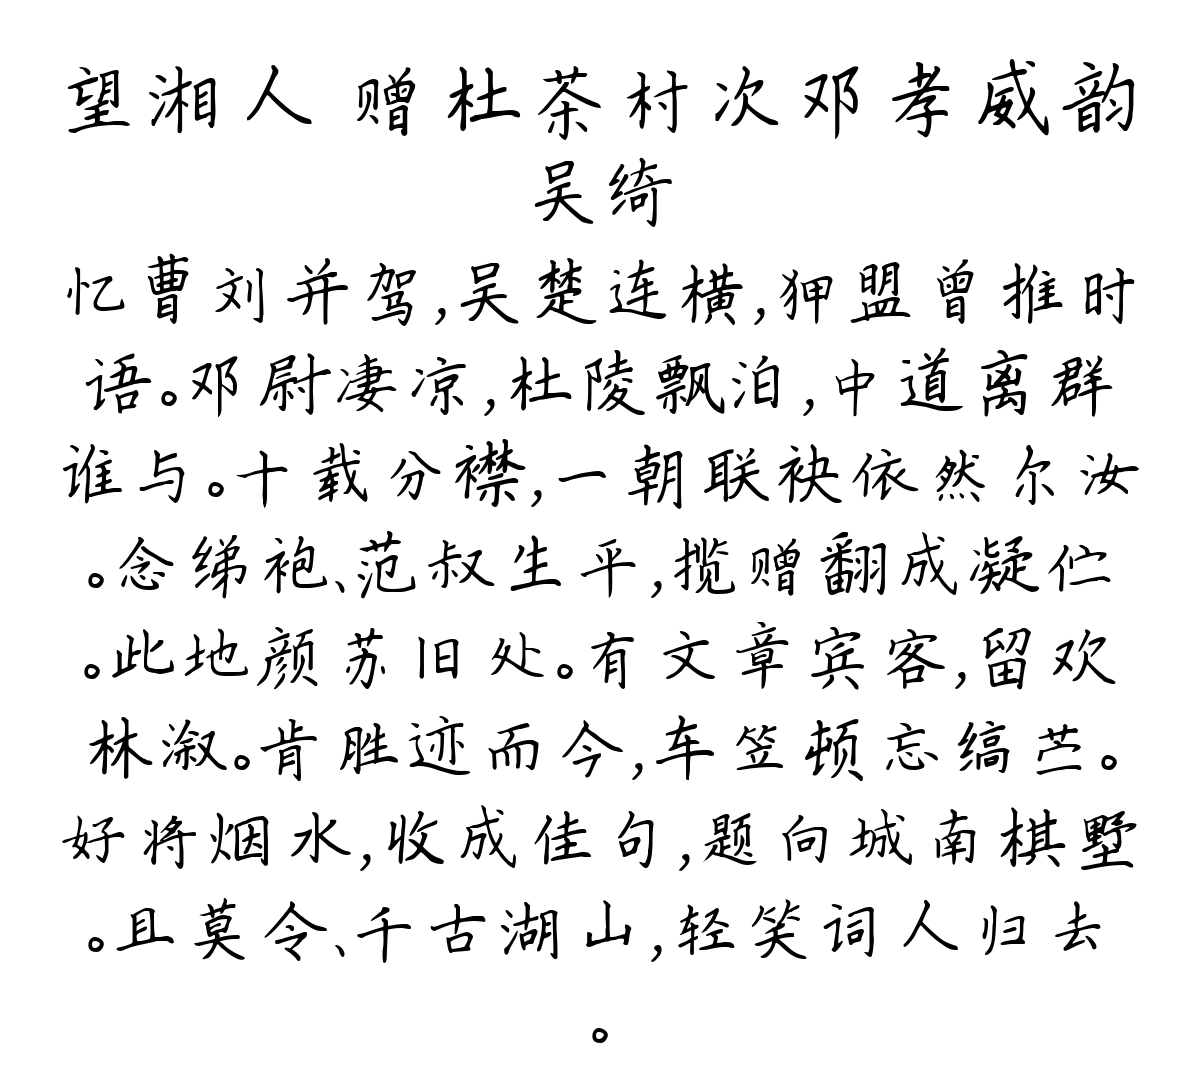 望湘人 赠杜茶村次邓孝威韵
吴绮
忆曹刘并驾,吴楚连横,狎盟曾推时
语。邓尉凄凉,杜陵飘泊,中道离群
谁与。十载分襟,一朝联袂依然尔汝
。念绨袍、范叔生平,揽赠翻成凝伫
。此地颜苏旧处。有文章宾客,留欢
林溆。肯胜迹而今,车笠顿忘缟苎。
好将烟水,收成佳句,题向城南棋墅
。且莫令、千古湖山,轻笑词人归去
。